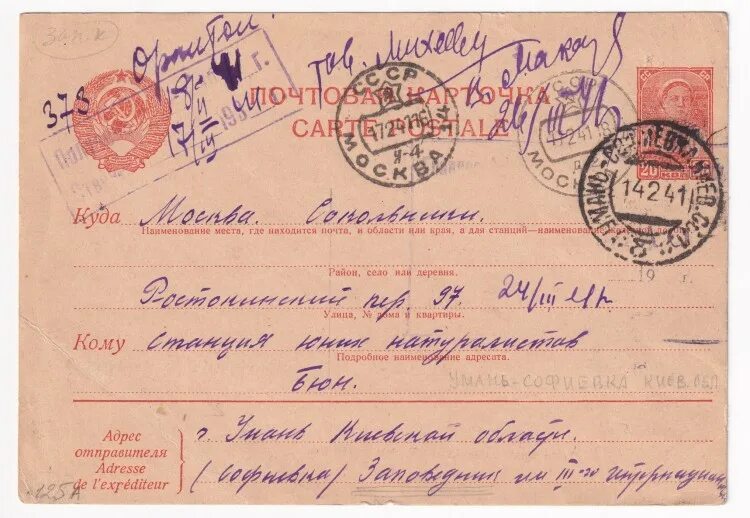 Зап. к
378
тов.
26/III
ПОЧТОВАЯ КАРТОЧКА
CARTE POSTALE
СССР
17241
МОСКВА
СССР
17241
МОСКВА
20
КОП
УМАНЬ-СОФИЕВКА КИЕВ.
14241
Куда Москва. Сокольники.
Наименование места, где находится почта, и области или края, а для станций—наименование
Район, село или деревня.
19 г.
Ростокинский пер. 97. 24/III
Улица, № дома и квартиры.
Кому Станция юных натуралистов
Подробное наименование адресата.
Бюн.
УМАНЬ-СОФИЕВКА КИЕВ. ОБЛ
Адрес
отправителя
Adresse
de l'expéditeur
г. Умань Киевской области.
(Софиевка) Заповедник им III-го
125А